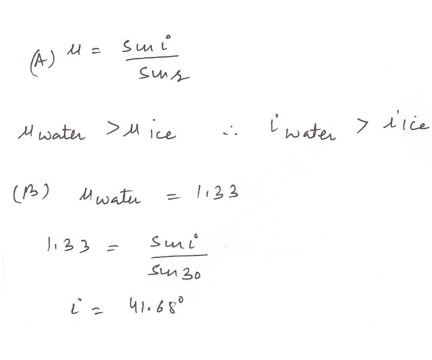 (A) μ = sin i / sin r
μ water > μ ice ∴ i water > i ice
(B) μ water = 1.33
1.33 = sin i / sin 30
i = 41.68°